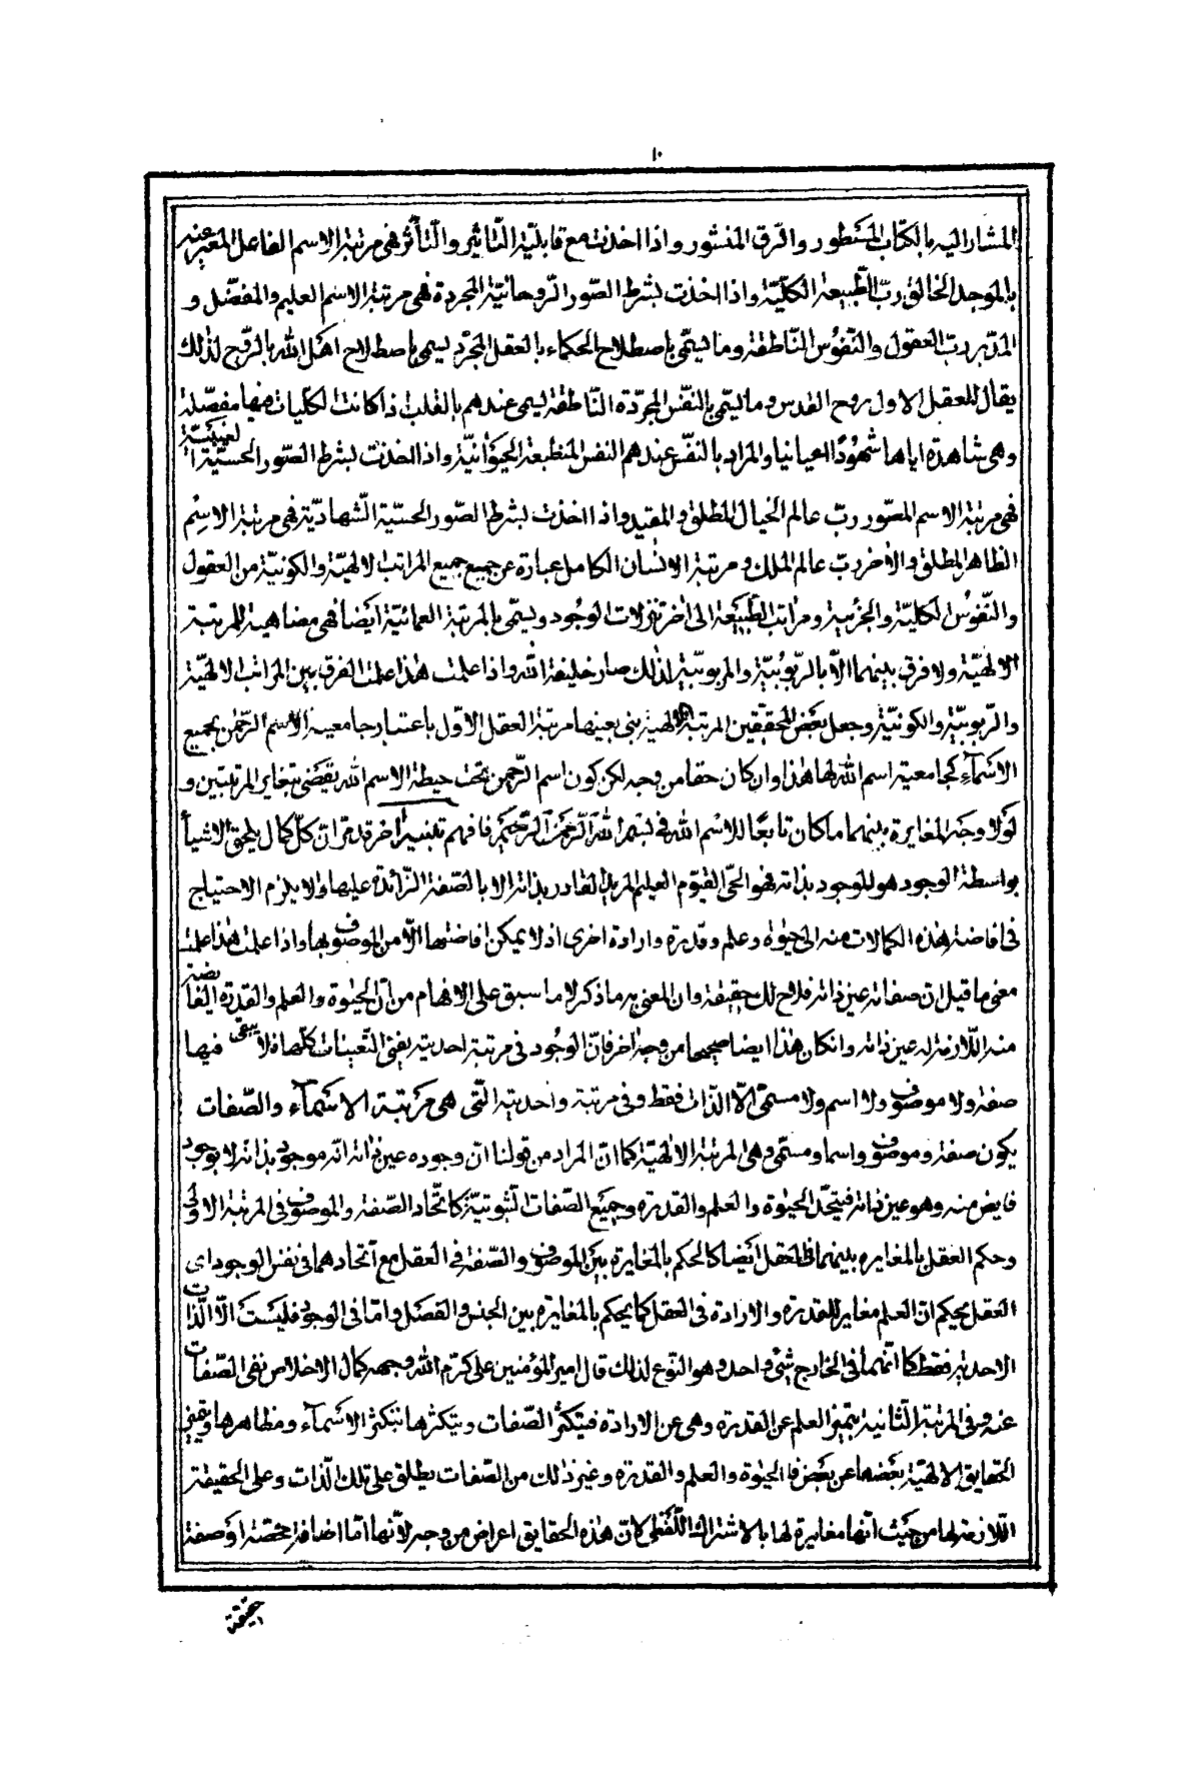 ١٠
المشار اليه بالكتاب المسطور والرق المنشور واذا اخذت مع قابليّة التّأثير والتّأثر فهى مرتبة الاسم الفاعل المعبر عنه
بالموجد الخالق ربّ الطّبيعة الكلّيّة واذا اخذت بشرط الصّور الرّوحانيّة المجردة فهى مرتبة الاسم العليم والمفصّل و
المدّبر ربّ العقول والنّفوُس النّاطقة وما يسمّى باصطلاح الحكماء بالعقل المجرّد يسمى باصطلاح اهَل الله بالرّوح لذلك
يقال للعقل الاول روح القدس وما يسمّى بالنّفس المجرّدة النّاطقة يسمى عندهم بالقلب اذا كانت الكلّيات فيها مفصّلة
وهى شاهدة اياها شهُودًا عيانيا والمراد بالنفّس عندهم النفس المنطبعة الحيَوانيّة واذا اخذت بشرط الصّور الحسّيّة الغيبَيّة
فهى مرتبة الاسم المصّور ربّ عالم الخيال المطلق والمقيد واذا اخذت بشرط الصّور الحسّية الشّهاديّة فهى مرتبة الاسِم
الظاهر المطلق والاٰخر ربّ عالم الملك و مرتبة الانسٰان الكامل عبارة عن جميع جميع المراتب الالهيّة والكونيّة من العقول
والنّفوُس الكلّيّة والجزئية ومراتب الطّبيَعة الى اٰخر تنزلات الوجُود ويسمّى بالمرتبة العمائيّة ايَضا فهى مضاهية للمرتبة
الالهيّة ولا فرق بينهما الاّ بالرّبوُبيّة والمربوبيّة لذلك صار خليفة الله واذا علمت هٰذا علمت الفرق بين المراتب الالهيّة
والرّبوبيّة والكونيّة وجعل بعَض المحققّين المرتبة الالهية بنى بعينها مرتبة العقل الاوّل باعتبار جامعية الاسم الرّحمٰن بجميع
الاسَمآء كجامعية اسم الله لها هٰذا وان كان حقا من وجه لكن كون اسم الرّحمن تحت حيطة الاسم الله يقضى بتغاير المرتبتين و
لَولا وجَه المغايرة بينهما ما كان تابعًا للاسْم الله فى بسم الله الرّحمن الرّحيم فافهم تنبيه اٰخر قد مرّ ان كلّ كمال يلحق الاشيآ
بواسطة الوجود هو للموجود بذاته فهو الحىّ القيّوم العليم المريد القادر بذاته لا بالصّفة الزّائدة عليها والا يلزم الاحتياج
فى افاضة هٰذه الكمالات منه الى حيٰوة وعلم وقدرة وارادة اخرى اذ لا يمكن افاضتها الاّ من الموصُوف بها واذا علمت هٰذا علمت
معنى ما قيل ان صفاته عين ذاته فلاح لك حقيقة وان المعنى به ما ذكر لا ما سبق على الافهام من ان الحيٰوة والعلم والقدرة الفائضة
منه اللاّزمة له عين ذاته وان كان هٰذا ايضا صحيحا من وجه اٰخر فانّ الوجُود فى مرتبة احديته ينفى التّعينات كلّها فلا يبقى فيها
صفة ولا موصُوف ولا اسم ولا مسمّى الاّ الذّات فقط وفى مرتبة واحديته الّتى هى مرَتبة الاسَمآء والصّفات
يكون صفة وموصُوف واسما ومسمّى وهى المرتبة الالٰهيّة كما انّ المراد من قولنا ان وجوده عين ذاته انه موجود بذاته لا بوجود
فايض منه وهو عين ذاته فيتّحد الحيٰوة والعلم والقدرة وجميع الصّفات الثّبوتيّة كاتّحاد الصّفة والموصُوف فى المرتبة الاولى
وحكم العقل بالمغايره بينهما فى العقل ايَضا كالحكم بالمغايرة بيَن الموصُوف والصّفة فى العقل مع اتّحادهما فى نفس الوجود اى
العقل يحكم انّ العلم مغاير للقدرة والارادة فى العقل كما يحكم بالمغايرة بين الجنس والفصَل واما فى الوجود فليسَت الاّ الذّات
الاحدية فقط كما انّهما فى الخارج شيئ واحد وهو النّوع لذلك قال امير المؤمنين على كرّم الله وجهه كمال الاخلاص نفى الصّفات
عنه وفى المرتبة الثّانية يتميّز العلم عن القدرة وهى عن الارادة فيتكثّر الصّفات وبتكثرها يتكثر الاسَمآء ومظاهرها ويتميز
الحقايق الالهيّة بعَضها عن بعَض فالحيٰوة والعلم والقدرة وغير ذالك من الصّفات يطلق على تلك الذّات وعلى الحقيقة
اللاّزمة لها من حيَث انّها مغايرة لها بالاشتراك اللّفظى لانّ هٰذه الحقايق اعراض من وجه لانّها امّا اضافة محضة اوَ صفة
حقيقة